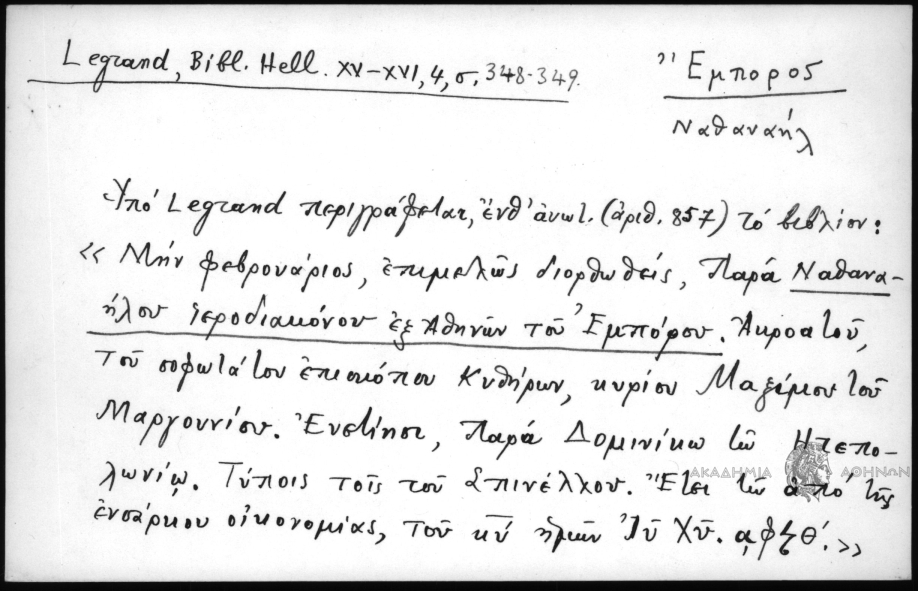 Legrand, Bibl. Hell. XV-XVI, 4, σ. 348-349.
Ἔμπορος
Ναθαναήλ
Ὑπό Legrand περιγράφεται, ἔνθ' ἀνωτ. (ἀριθ. 857) τό βιβλίον:
« Μήν φεβρουάριος, ἐπιμελῶς διορθωθείς, Παρά Ναθανα-
ήλου ἱεροδιακόνου ἐξ Ἀθηνῶν τοῦ Ἐμπόρου. Ἀκροατοῦ,
τοῦ σοφωτάτου ἐπισκόπου Κυθήρων, κυρίου Μαξίμου τοῦ
Μαργουνίου. Ἐνετίησι, Παρά Δομινίκω τῶ Ητεπο-
λωνίῳ. Τύποις τοῖς τοῦ Σπινέλλου. Ἔτει τῶ ἀπό τῆς
ἐνσάρκου οἰκονομίας, τοῦ κῡ ἡμῶν Ἰῡ Χῡ. ͵αφζθ΄. »
ΑΚΑΔΗΜΙΑ ΑΘΗΝΩΝ